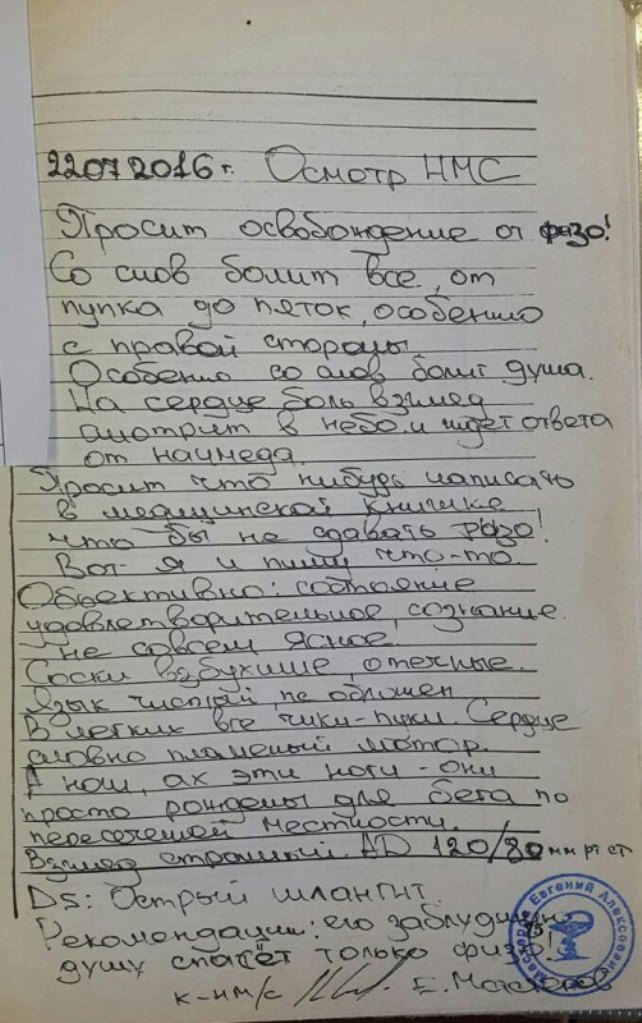 22072016г. Осмотр НМС
Просит освобождение от физо!
Со слов болит все, от
пупка до пяток, особенно
с правой стороны
Особенно со слов болит душа.
На сердце боль взгляд
смотрит в небо и ждет ответа
от начмеда.
Просит что нибудь написать
в медицинской книжке
что бы не сдавать физо!
Вот я и пишу что-то.
Объективно: состояние
удовлетворительное, сознание
не совсем ясное.
Соски взбухшие, отечные.
Язык чистый, не обложен
В легких все чики-пуки. Сердце
словно пламеный мотор.
А ноги, ах эти ноги - они
просто рождены для бега по
пересеченой местности.
Взгляд страшный. AD 120/80 мм рт ст
Ds: Острый шлангит.
Рекомендации: его заблудшую
душу спасёт только физо!
к-нм/с Е. Мастеров
Мастеров Евгений Алексеевич